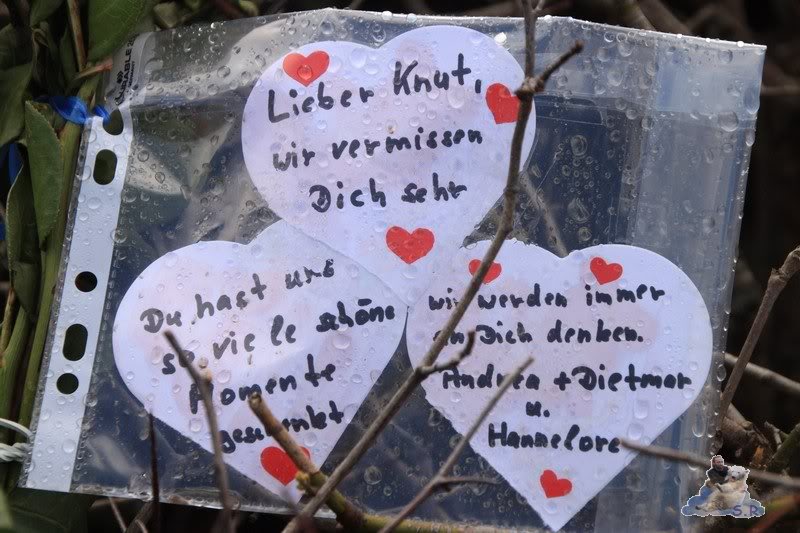 Lieber Knut,
wir vermissen
Dich sehr
Du hast uns
so viele schöne
Momente
geschenkt
wir werden immer
an Dich denken.
Andrea + Dietmar
u.
Hannelore
S.R.